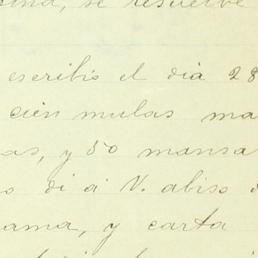 se resuelve
escribió el dia 28
cien mulas ma
as, y 50 mansa
o di á V. abiso
ama, y carta